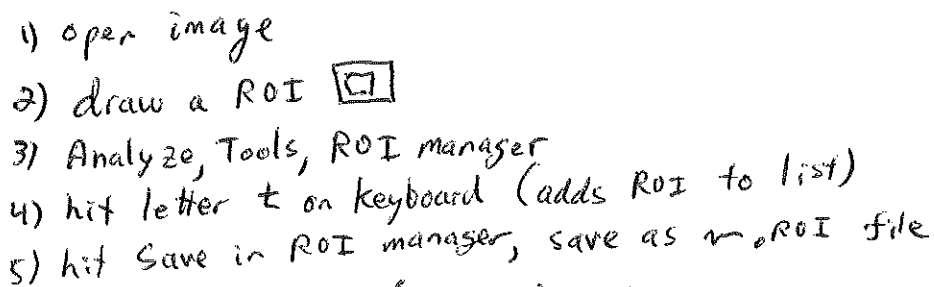 1) open image
2) draw a ROI
3) Analyze, Tools, ROI manager
4) hit letter t on keyboard (adds ROI to list)
5) hit Save in ROI manager, save as .ROI file